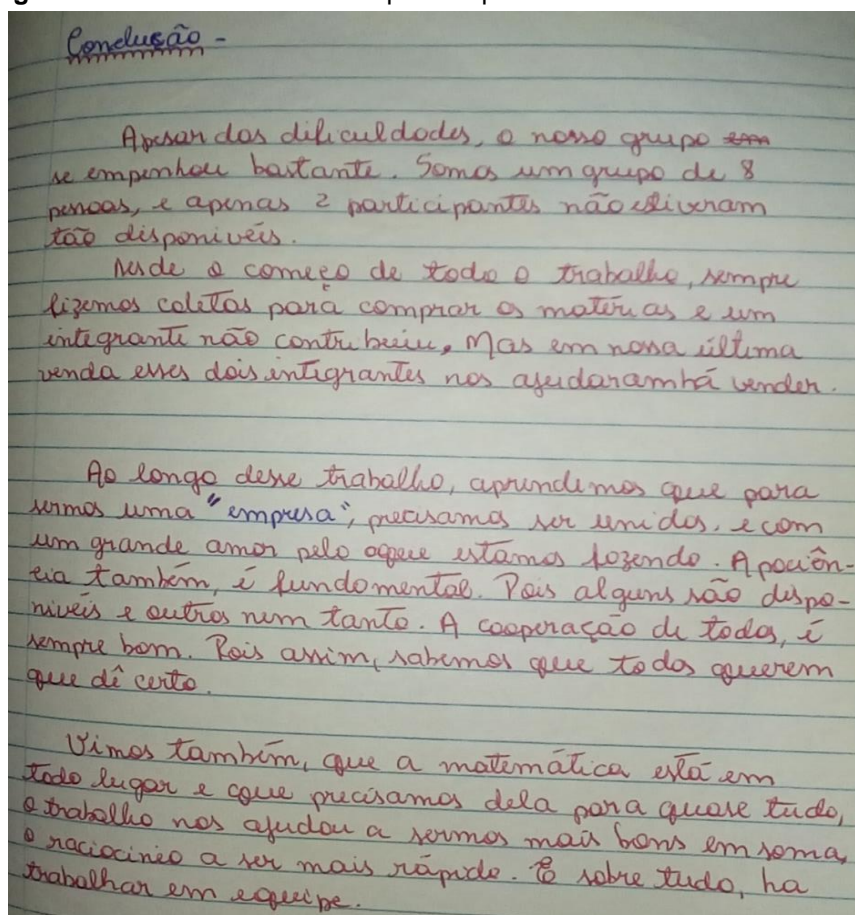 Conclusão -
Apesar das dificuldades, o nosso grupo em
se empenhou bastante. Somos um grupo de 8
pessoas, e apenas 2 participantes não estiveram
tão disponivéis.
Desde o começo de todo o trabalho, sempre
fizemos coletas para comprar os matérias e um
integrante não contribuiu, Mas em nossa última
venda esses dois integrantes nos ajudaram há vender.
Ao longo desse trabalho, aprendemos que para
sermos uma "empresa", precisamos ser unidos, e com
um grande amor pelo oque estamos fazendo. A paciên-
cia também, é fundamental. Pois alguns são dispo-
nivéis e outros nem tanto. A cooperação de todos, é
sempre bom. Pois assim, sabemos que todos querem
que dê certo.
Vimos também, que a matemática está em
todo lugar e que precisamos dela para quase tudo,
o trabalho nos ajudou a sermos mais bons em soma,
o raciocinio a ser mais rápido. E sobre tudo, ha
trabalhar em equipe.